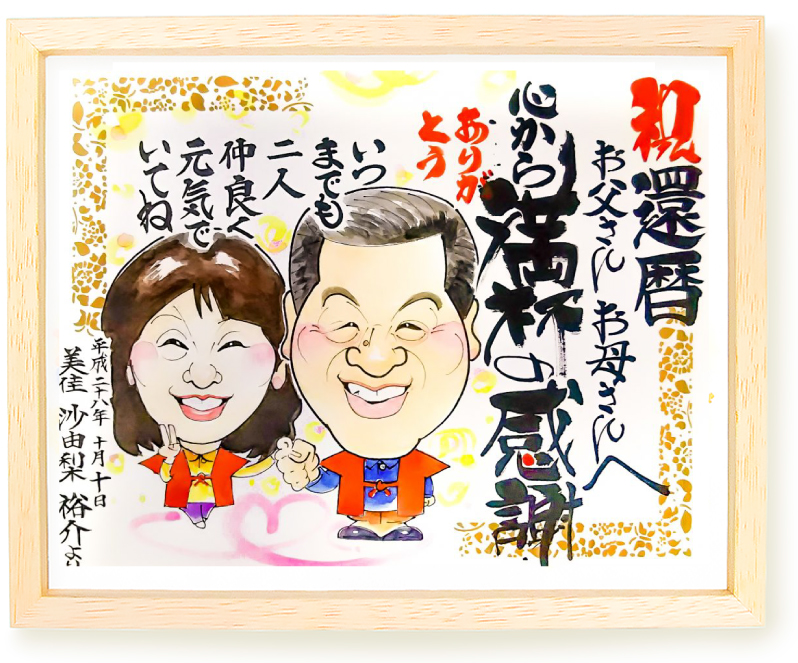 祝還暦
お父さんお母さんへ
心から満杯の感謝
ありが
とう
いつ
までも
二人
仲良く
元気で
いてね
平成二十八年 十月十日
美佳 沙由梨 裕介より